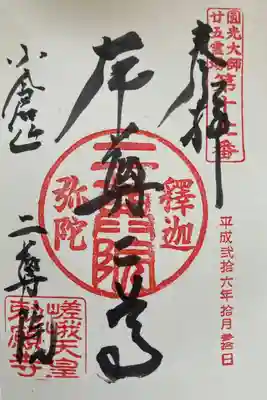 圓光大師
廿五霊場第十七番
奉拝
平成弐拾六年拾月
本尊二尊
釋迦
二尊院
弥陀
小倉山
二尊院
嵯峨天皇
勅願寺